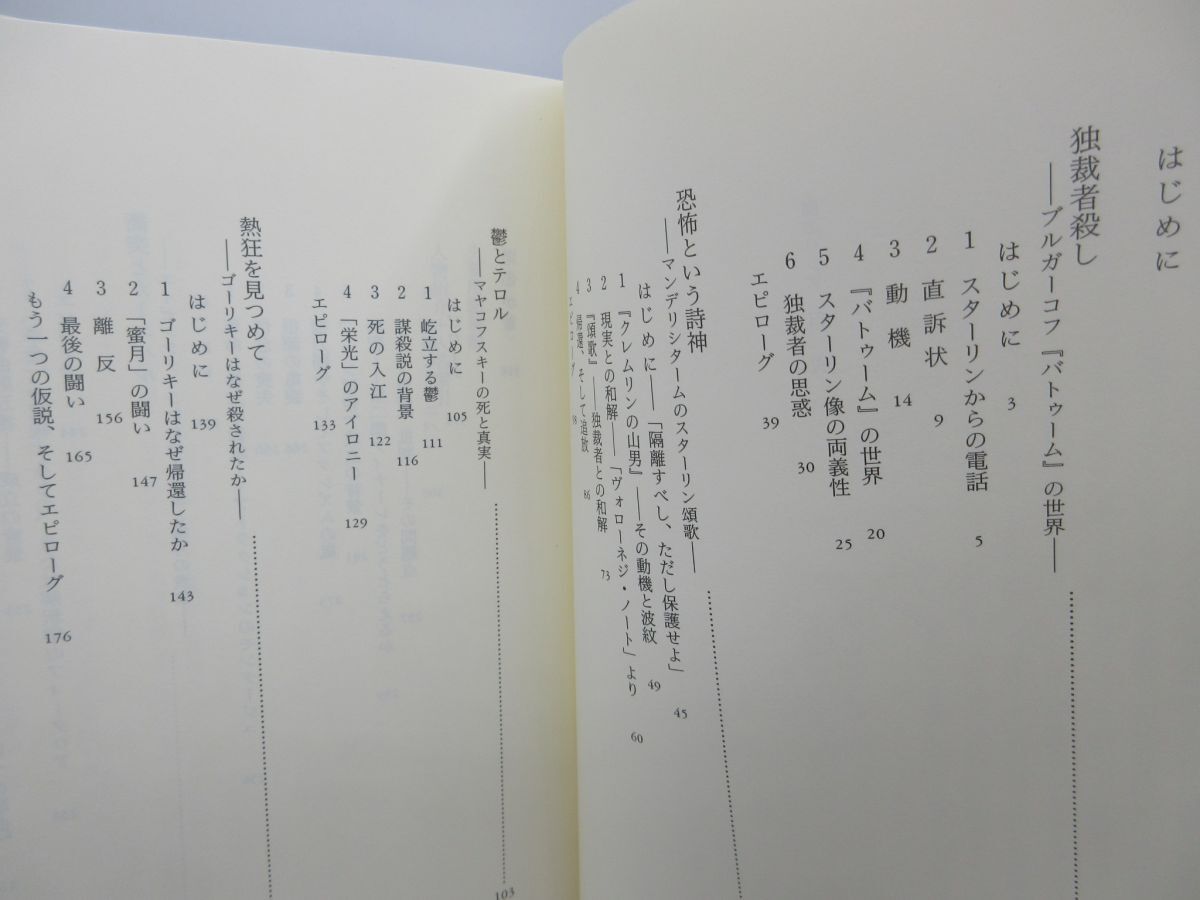 はじめに
独裁者殺し
――ブルガーコフ『バトゥーム』の世界――
はじめに 3
1 スターリンからの電話 5
2 直訴状 9
3 動機 14
4 『バトゥーム』の世界 20
5 スターリン像の両義性 25
6 独裁者の思惑 30
エピローグ 39
恐怖という詩神
――マンデリシタームのスターリン頌歌――
はじめに――「隔離すべし、ただし保護せよ」 45
1 『クレムリンの山男』――その動機と波紋 49
2 現実との和解――「ヴォローネジ・ノート」より 60
3 『頌歌』――独裁者との和解 73
4 帰還、そして追放 86
エピローグ 98
鬱とテロル
――マヤコフスキーの死と真実――
103
はじめに 105
1 屹立する鬱 111
2 謀殺説の背景 116
3 死の入江 122
4 「栄光」のアイロニー 129
エピローグ 133
熱狂を見つめて
――ゴーリキーはなぜ殺されたか――
はじめに 139
1 ゴーリキーはなぜ帰還したか 143
2 「蜜月」の闘い 147
3 離反 156
4 最後の闘い 165
もう一つの仮説、そしてエピローグ 176